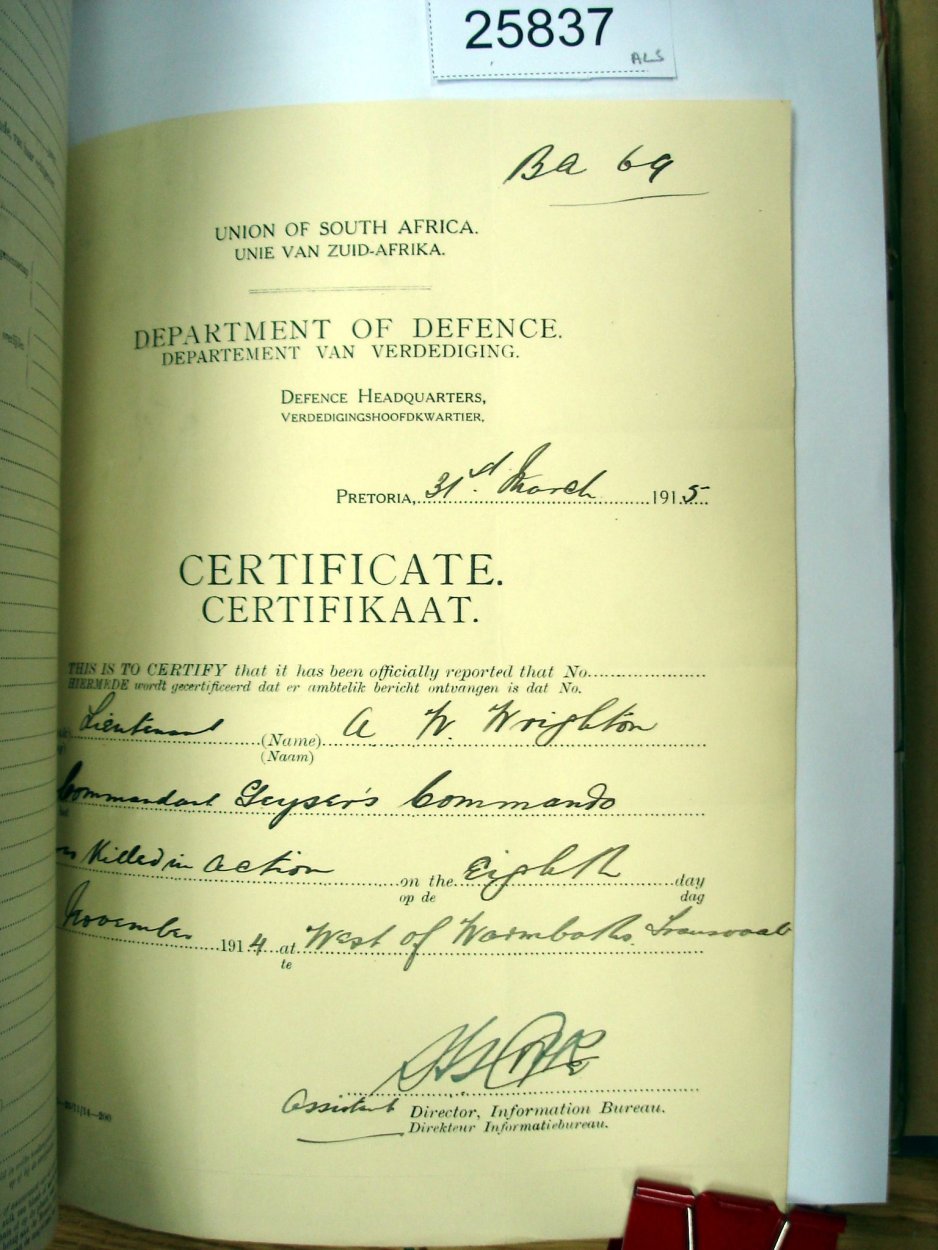 25837
ALS
Ba 69
UNION OF SOUTH AFRICA.
UNIE VAN ZUID-AFRIKA.
DEPARTMENT OF DEFENCE.
DEPARTEMENT VAN VERDEDIGING.
DEFENCE HEADQUARTERS,
VERDEDIGINGSHOOFDKWARTIER,
PRETORIA, 31d. March 1915.
CERTIFICATE.
CERTIFIKAAT.
THIS IS TO CERTIFY that it has been officially reported that No.
HIERMEDE wordt gecertificeerd dat er ambtelik bericht ontvangen is dat No.
Lieutenant (Name) A W. Wrighton
(Naam)
Commandant Geyser's Commando
Killed in action on the Eighth day
op de dag
November 1914 at West of Warmbaths Transvaal
te
Assistant Director, Information Bureau.
Direkteur Informatiebureau.